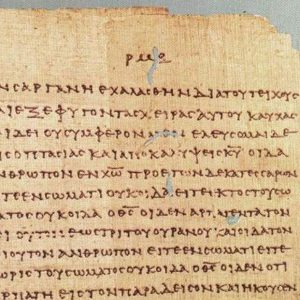 ΡΜΘ
ΝϹΑΡΓΑΝΗΕΧΑΛΑϹΘΗΝΔΙΑΤΟΥΤΕΙΧΟΥϹ
ΑΙΕΞΕΦΥΓΟΝΤΑϹΧΕΙΡΑϹΑΥΤΟΥΚΑΥΧΑϹ
ΑΙΔΕΙΟΥϹΥΜΦΕΡΟΝΜΕΝΕΛΕΥϹΟΜΑΙΔΕ
ΙϹΟΠΤΑϹΙΑϹΚΑΙΑΠΟΚΑΛΥΨΕΙϹΚ̅Υ̅ΟΙΔΑ
ΝΘΡΩΠΟΝΕΝΧ̅Ω̅ΠΡΟΕΤΩΝΔΕΚΑΤΕϹϹΑΡΩΝ
ΙΤΕΕΝϹΩΜΑΤΙΟΥΚΟΙΔΑΕΙΤΕΕΚΤΟϹΤΟΥϹΩ
ΑΤΟϹΟΥΚΟΙΔΑΟΘ̅Ϲ̅ΟΙΔΕΝΑΡΠΑΓΕΝΤΑΤΟΝ
ΟΙΟΥΤΟΝΕΩϹΤΡΙΤΟΥΟΥΡΑΝΟΥΚΑΙΟΙΔΑΤΟΝ
ΟΙΟΥΤΟΝΑΝΘΡΩΠΟΝΕΙΤΕΕΝϹΩΜΑΤΙΕΙΤΕ
ΩΡΙϹΤΟΥϹΩΜΑΤΟϹΟΥΚΟΙΔΑΟΘ̅Ϲ̅ΟΙΔΕΝΟΤΙ
ΡΠΑΓΗΕΙϹΤΟΝΠΑΡΑΔΕΙϹΟΝΚΑΙΗΚΟΥϹΕΝ